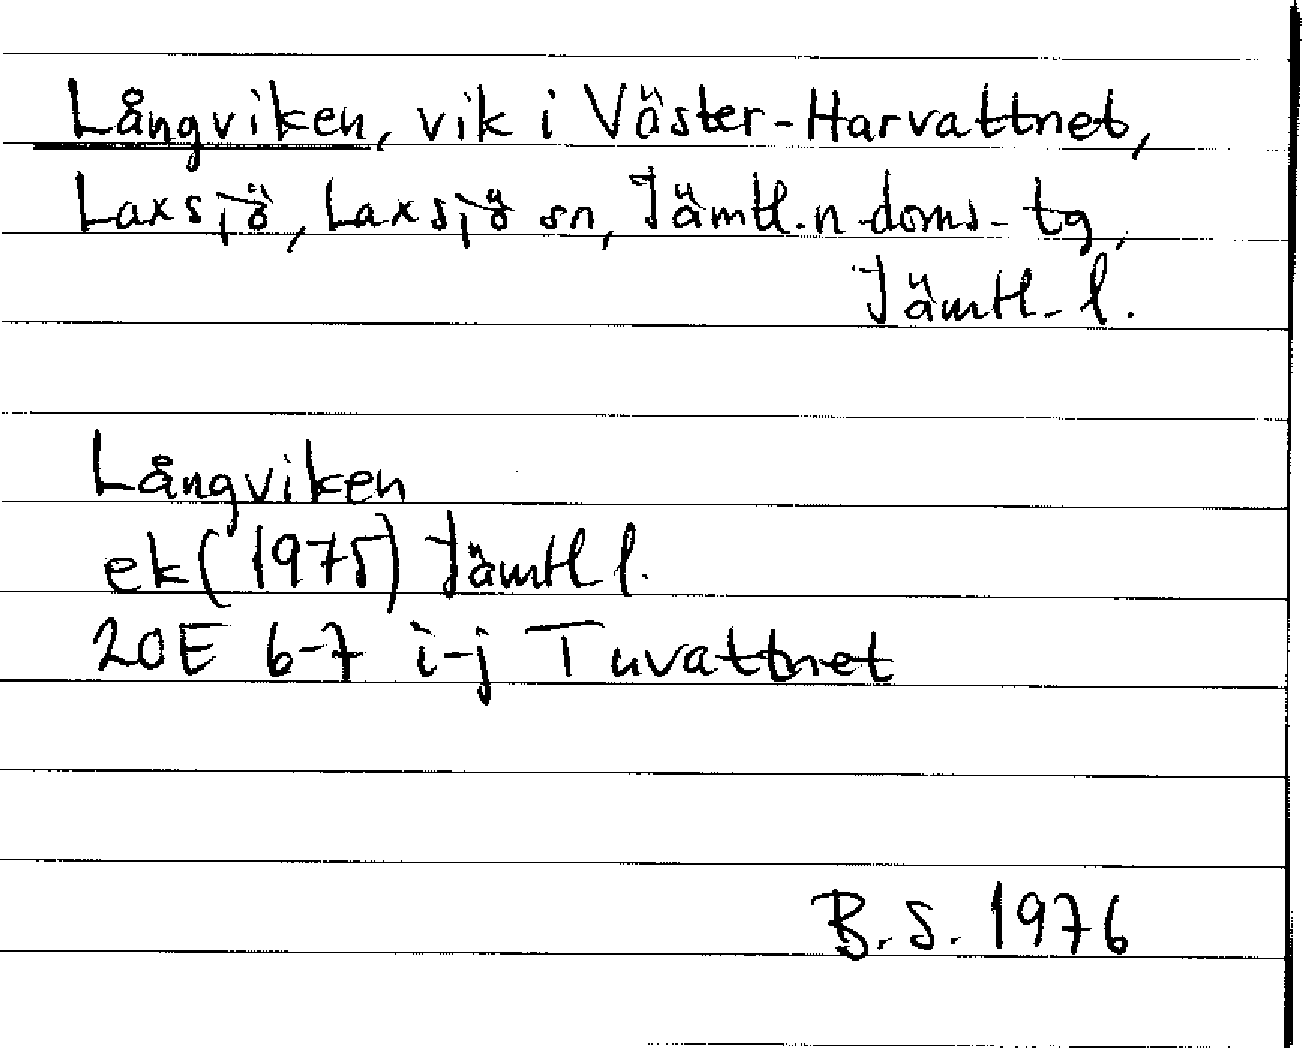 Långviken, vik i Väster-Harvattnet,
Laxsjö, Laxsjö sn, Jämtl. n. doms. tg,
Jämtl. l.
Långviken
ek (1975) Jämtl l.
20E 6-7 i-j Tuvattnet
B.S. 1976